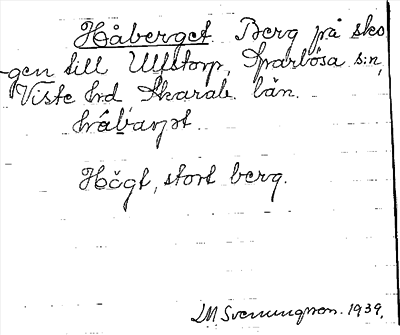 Håberget Berg på sko-
gen till Ullstorp, Sparlösa s:n,
Viste hrd, Skarab. län.
hå̀bærjət
Högt, stort berg.
LM Svenungsson. 1939.